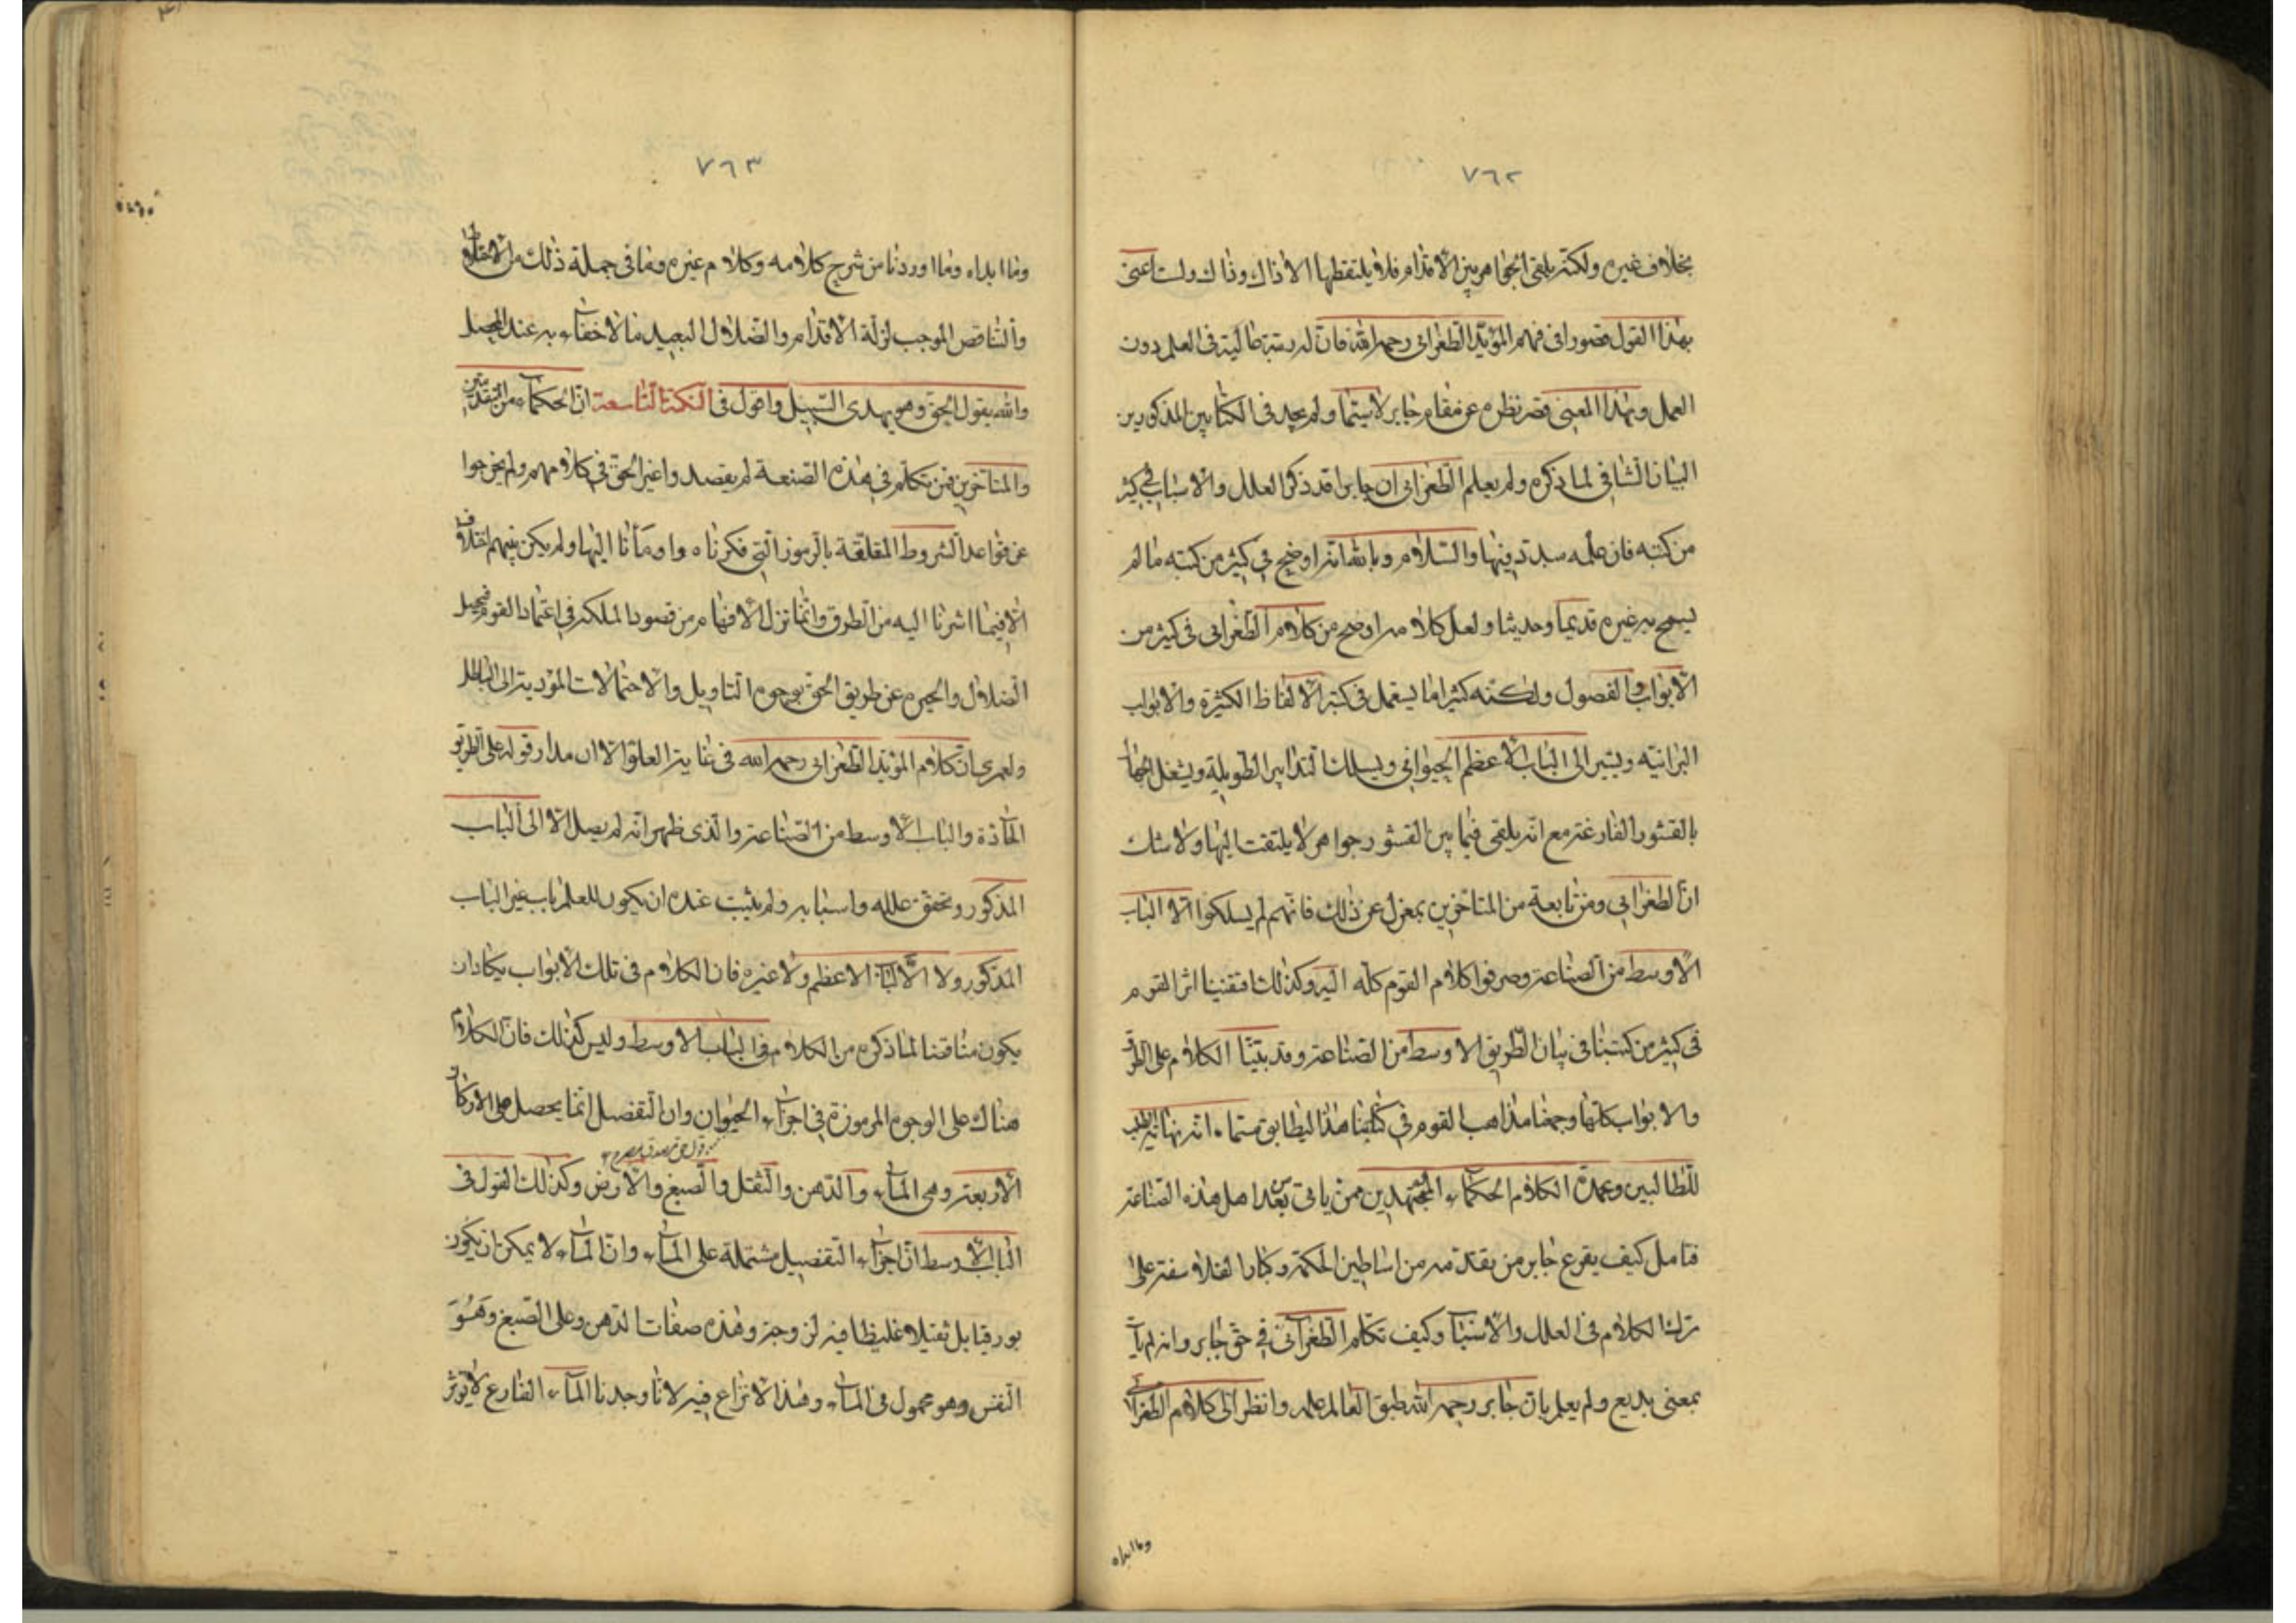 ٧٦٢
بخلاف غيره ولكنه يلقى الجواهر بين الاقدام فلا يلتقطها الا ذاك وذاك ولست اعنى
بهذا القول قصورا فى فهم المؤيد الطغرائى رحمه الله فان له رتبة عالية فى العلم دون
العمل وبهذا المعنى قصر نظره عن مقام جابر لاسيما ولم يجد فى الكتابين المذكورين
البيان الشافى لما ذكره ولم يعلم الطغرائى ان جابرا قد ذكر العلل والاسباب فى كثير
من كتبه فان علمه مبدد فيها والسلام وبالله انه اوضح فى كثير من كتبه ما لم
يسمح به غيره قديما وحديثا ولعل كلامه اوضح من كلام الطغرائى فى كثير من
الابواب والفصول ولكنه كثيرا ما يستعمل فى كتبه الالفاظ الكثيرة والابواب
البرانيه ويشير الى الباب الاعظم الحيوانى ويسلك التدابير الطويلة ويشغل الجهال
بالقشور الفارغة مع انه يلقى فيما بين القشور جواهر لا يلتفت اليها ولا شك
ان الطغرائى ومن تابعه من المتاخرين بمعزل عن ذلك فانهم لم يسلكوا الا الباب
الاوسط من الصناعة وصرفوا كلام القوم كله اليه وكذلك اقتفينا اثر القوم
فى كثير من كتبنا فى بيان الطريق الاوسط من الصناعة وقد بينا الكلام على الطرق
والابواب كلها وجمعنا مذاهب القوم فى كتابنا هذا ليطابق مسماه انه نهاية الطلب
للطالبين وعمدة الكلام الحكماء المجتهدين ممن ياتى بعد من اهل هذه الصناعة
فتامل كيف يقرع جابر من تقدمه من اساطين الحكمة وكبار الفلاسفة على
ترك الكلام فى العلل والاسباب وكيف تكلم الطغرائى فى حق جابر وانه لم يات
بمعنى بديع ولم يعلم بان جابر رحمه الله طبق العالم علمه وانظر الى كلام الطغرائى
وما ابداه
٧٦٣
وما ابداه وما اوردنا من شرح كلامه وكلام غيره وما فى جملة ذلك من الاختلاف
والتناقض الموجب لزلة الاقدام والضلال البعيد ما لا خفاء به عند المحصل
والله يقول الحق وهو يهدى السبيل واقول فى النكتة التاسعة ان الحكماء من المتقدمين
والمتاخرين فمن تكلم فى هذه الصنعة لم يقصدوا غير الحق فى كلامهم ولم يخرجوا
عن قواعد الشروط المقلقة بالرموز التى ذكرناه واومأنا اليها ولم يكن بينهم اختلاف
الا فيما اشرنا اليه من الطرق وانما تزل الافهام من قصود الملكة فى اعتماد القوم فيحصل
الضلال والحيره عن طريق الحق بوجوه التاويل والاحتمالات المؤدية الى الباطل
ولعمرى ان كلام المؤيد الطغرائى رحمه الله فى غاية العلو الا ان مدار قوله على الطريق
الجادة والباب الاوسط من الصناعة والذى ظهر انه لم يصل الا الى الباب
المذكور وتحقق علله واسبابه ولم يثبت عنده ان يكون للعلم باب غير الباب
المذكور ولا الباب الاعظم ولا غيره فان الكلام فى تلك الابواب يكاد ان
يكون مناقضا لما ذكره من الكلام فى الباب الاوسط وليس كذلك فان الكلام
هناك على الوجوه المرموزة فى اجزاء الحيوان وان التفصيل انما يحصل على الاركان
الاربعة وهى الماء والدهن والثقل والصبغ والارض وكذلك القول فى
الباب الاوسط ان اجزاء التفصيل مشتملة على الماء وان الماء لا يمكن ان يكون
بورقيا بل ثقيلا غليظا فيه لزوجة وهذه صفات الدهن وعلى الصبغ وهو
النفس وهو محمول فى الماء وهذا لا نزاع فيه لانا وجدنا الماء الفارغ لا يوثر